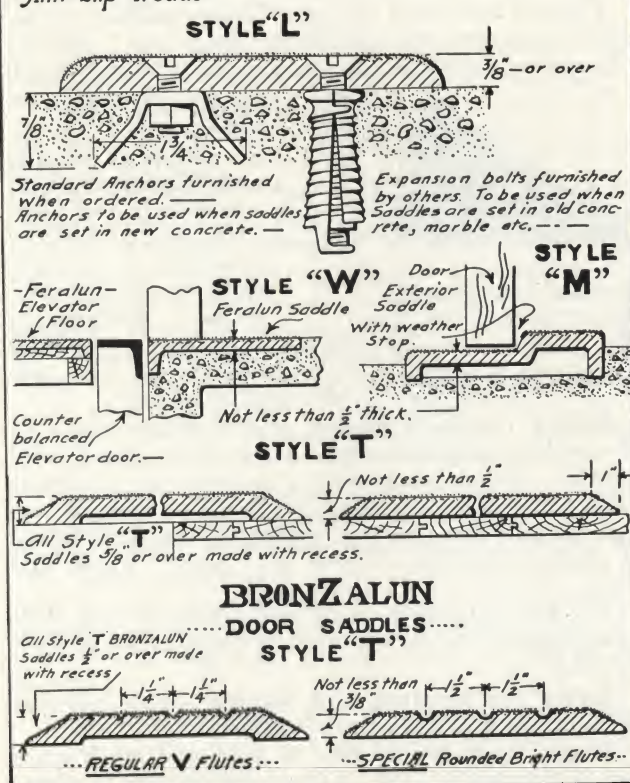 STYLE "L"
3/8"-or over
7/8
1 3/4
Standard Anchors furnished
when ordered. —
Anchors to be used when saddles
are set in new concrete. —
Expansion bolts furnished
by others. To be used when
Saddles are set in old conc-
rete, marble etc. —
STYLE "W"
-Feralun-
Elevator
Floor
Feralun Saddle
Counter
balanced
Elevator door. —
Not less than 1/2" thick.
STYLE
"M"
Door
Exterior
Saddle
With weather
Stop.
STYLE "T"
Not less than 1/2"
1"
All Style "T"
Saddles 5/8" or over made with recess.
BRONZALUN
DOOR SADDLES
STYLE "T"
All Style T BRONZALUN
Saddles 1/2" or over made
with recess
1 1/4" 1 1/4"
REGULAR V Flutes
Not less than
3/8"
1 1/2" 1 1/2"
SPECIAL Rounded Bright Flutes